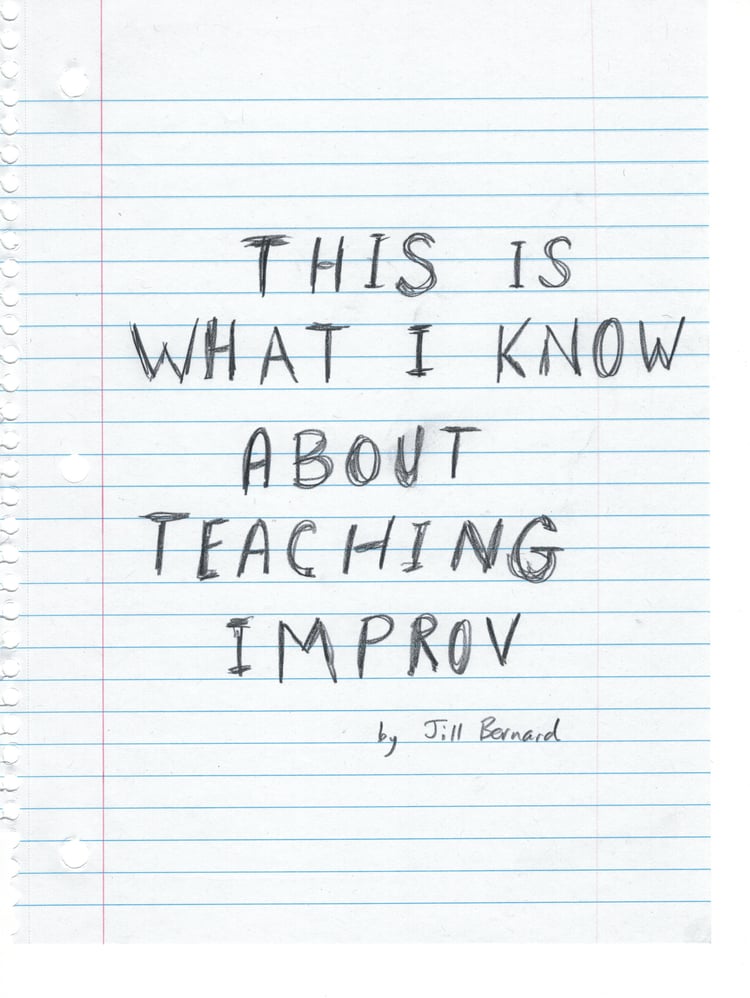 THIS IS
WHAT I KNOW
ABOUT
TEACHING
IMPROV
by Jill Bernard